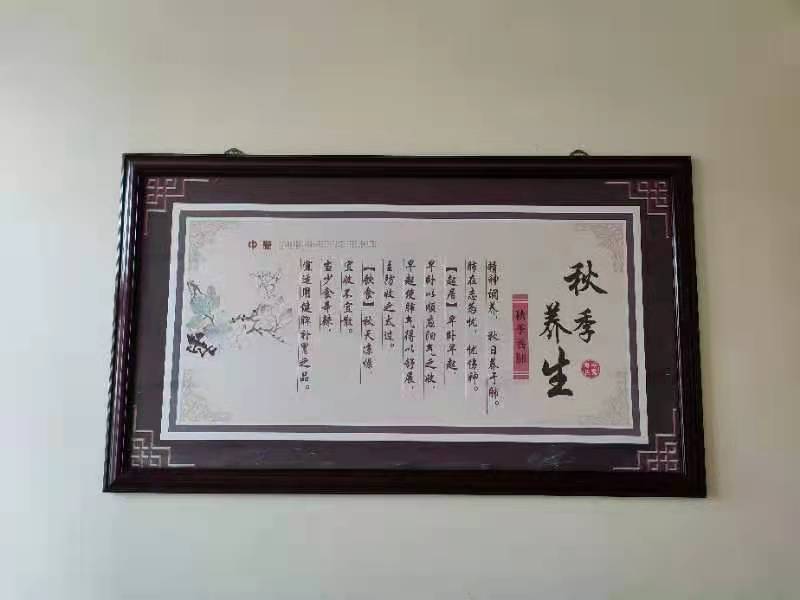 秋季
养生
秋季养肺
精神调养，秋日养于肺。
肺在志为忧，忧伤神。
【起居】早卧早起，
早卧以顺应阳气之收，
早起使肺气得以舒展，
且防收之太过。
【饮食】秋天凉燥，
宜收不宜散，
宜少食辛辣，
宜适用健脾补胃之品。
中医